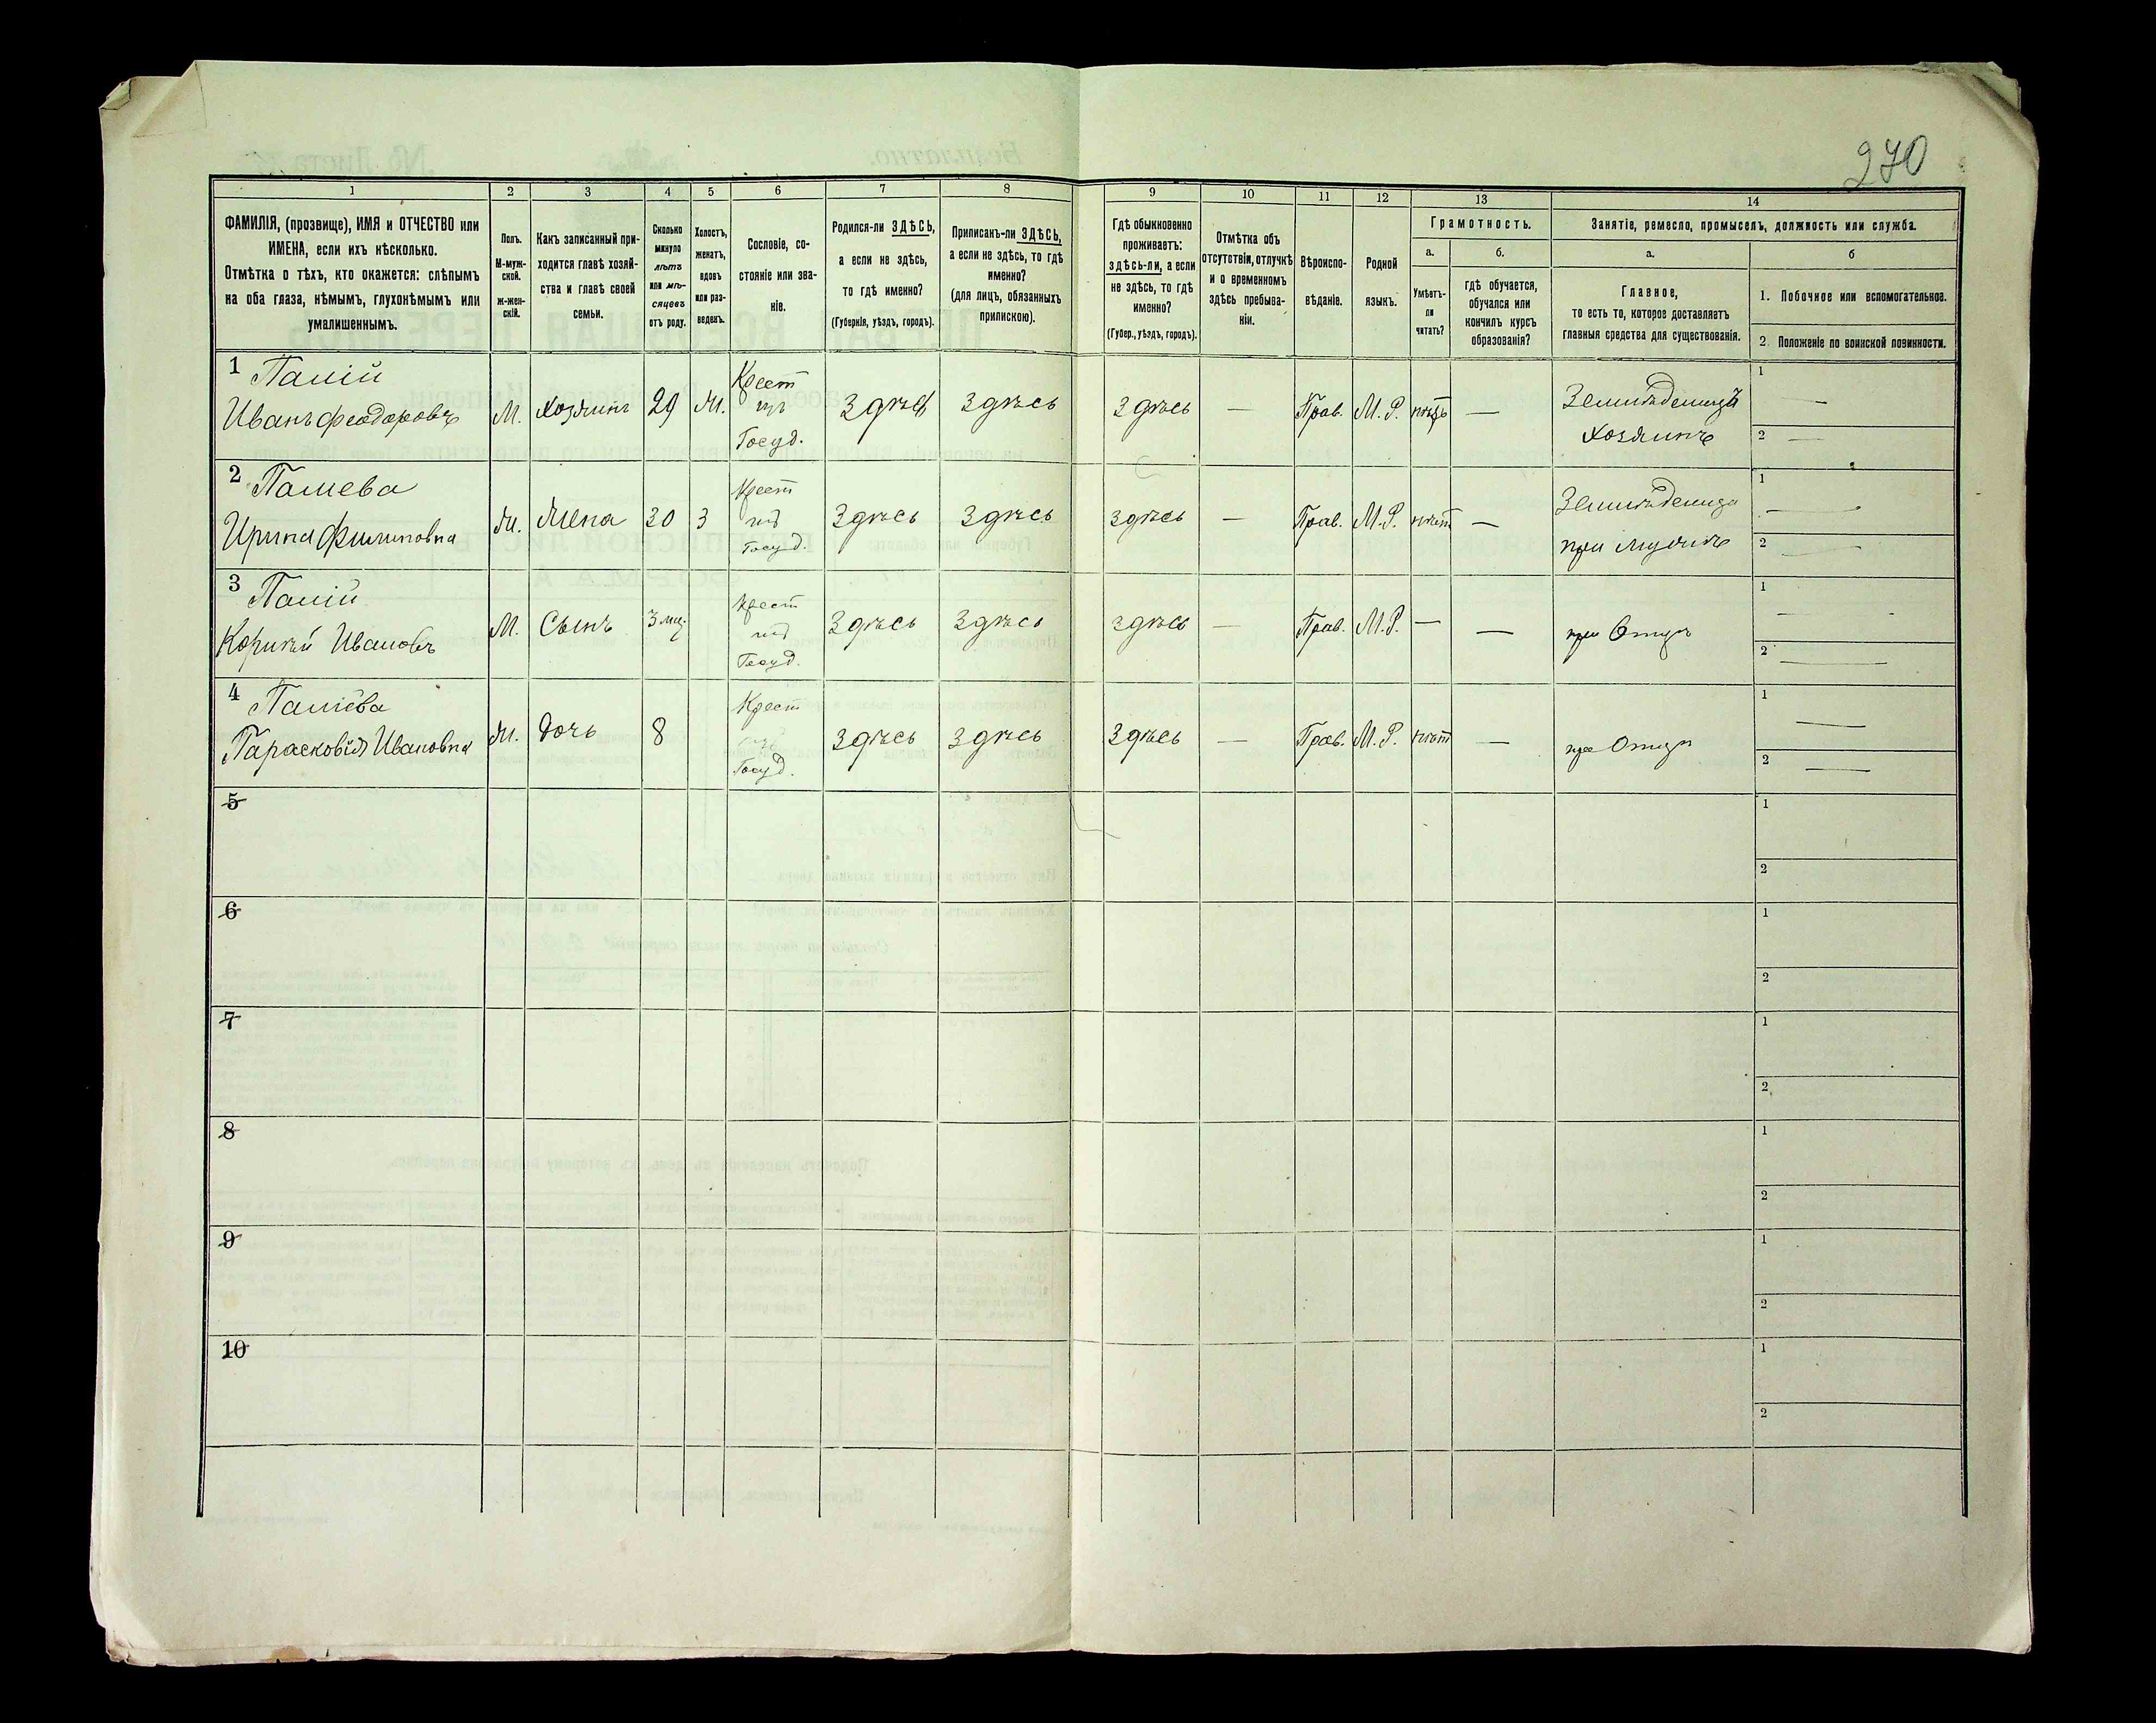 270
1 2 3 4 5 6 7 8 9 10 11 12 13 14
ФАМИЛІЯ, (прозвище), ИМЯ и ОТЧЕСТВО или
ИМЕНА, если ихъ нѣсколько.
Отмѣтка о тѣхъ, кто окажется: слѣпымъ
на оба глаза, нѣмымъ, глухонѣмымъ или
умалишеннымъ.
Полъ.
М-муж-
ской.
ж-жен-
скій.
Какъ записанный при-
ходится главѣ хозяй-
ства и главѣ своей
семьи.
Сколько
минуло
лѣтъ
или мѣ-
сяцевъ
отъ роду.
Холостъ,
женатъ,
вдовъ
или раз-
веденъ.
Сословіе, со-
стояніе или зва-
ніе.
Родился-ли ЗДѢСЬ,
а если не здѣсь,
то гдѣ именно?
(Губернія, уѣздъ, городъ).
Приписанъ-ли ЗДѢСЬ,
а если не здѣсь, то гдѣ
именно?
(для лицъ, обязанныхъ
припискою).
Гдѣ обыкновенно
проживаетъ:
здѣсь-ли, а если
не здѣсь, то гдѣ
именно?
(Губер., уѣздъ, городъ).
Отмѣтка объ
отсутствіи, отлучкѣ
и о временномъ
здѣсь пребыва-
ніи.
Вѣроиспо-
вѣданіе.
Родной
языкъ.
Грамотность.
а. б.
Умѣетъ-
ли
читать?
гдѣ обучается,
обучался или
кончилъ курсъ
образованія?
Занятіе, ремесло, промыселъ, должность или служба.
а. б
Главное,
то есть то, которое доставляетъ
главныя средства для существованія.
1. Побочное или вспомогательное.
2. Положеніе по воинской повинности.
1 Палій
Иванъ Феодоровъ
М. Хозяинъ 29 ж. Крест
изъ
Госуд. Здѣсь Здѣсь Здѣсь — Прав. М. Р. нѣтъ — Земледелецъ
хозяинъ
1 —
2 —
2 Палиева
Ирина Филиповна
ж. Жена 30 З Крест
изъ
Госуд. Здѣсь Здѣсь Здѣсь — Прав. М. Р. нѣтъ —
при мужѣ
1 —
2 —
3 Палій
Иванов
М. Сынъ 3 мц. Крест
изъ
Госуд. Здѣсь Здѣсь Здѣсь — Прав. М. Р. — — при Отцѣ
1 —
2 —
4 Паліева
Парасковія Ивановна
ж. дочь 8 Крест
изъ
Госуд. Здѣсь Здѣсь Здѣсь — Прав. М. Р. нѣтъ — при Отцѣ
1 —
2 —
5 1
2
6 1
2
7 1
2
8 1
2
9 1
2
10 1
2